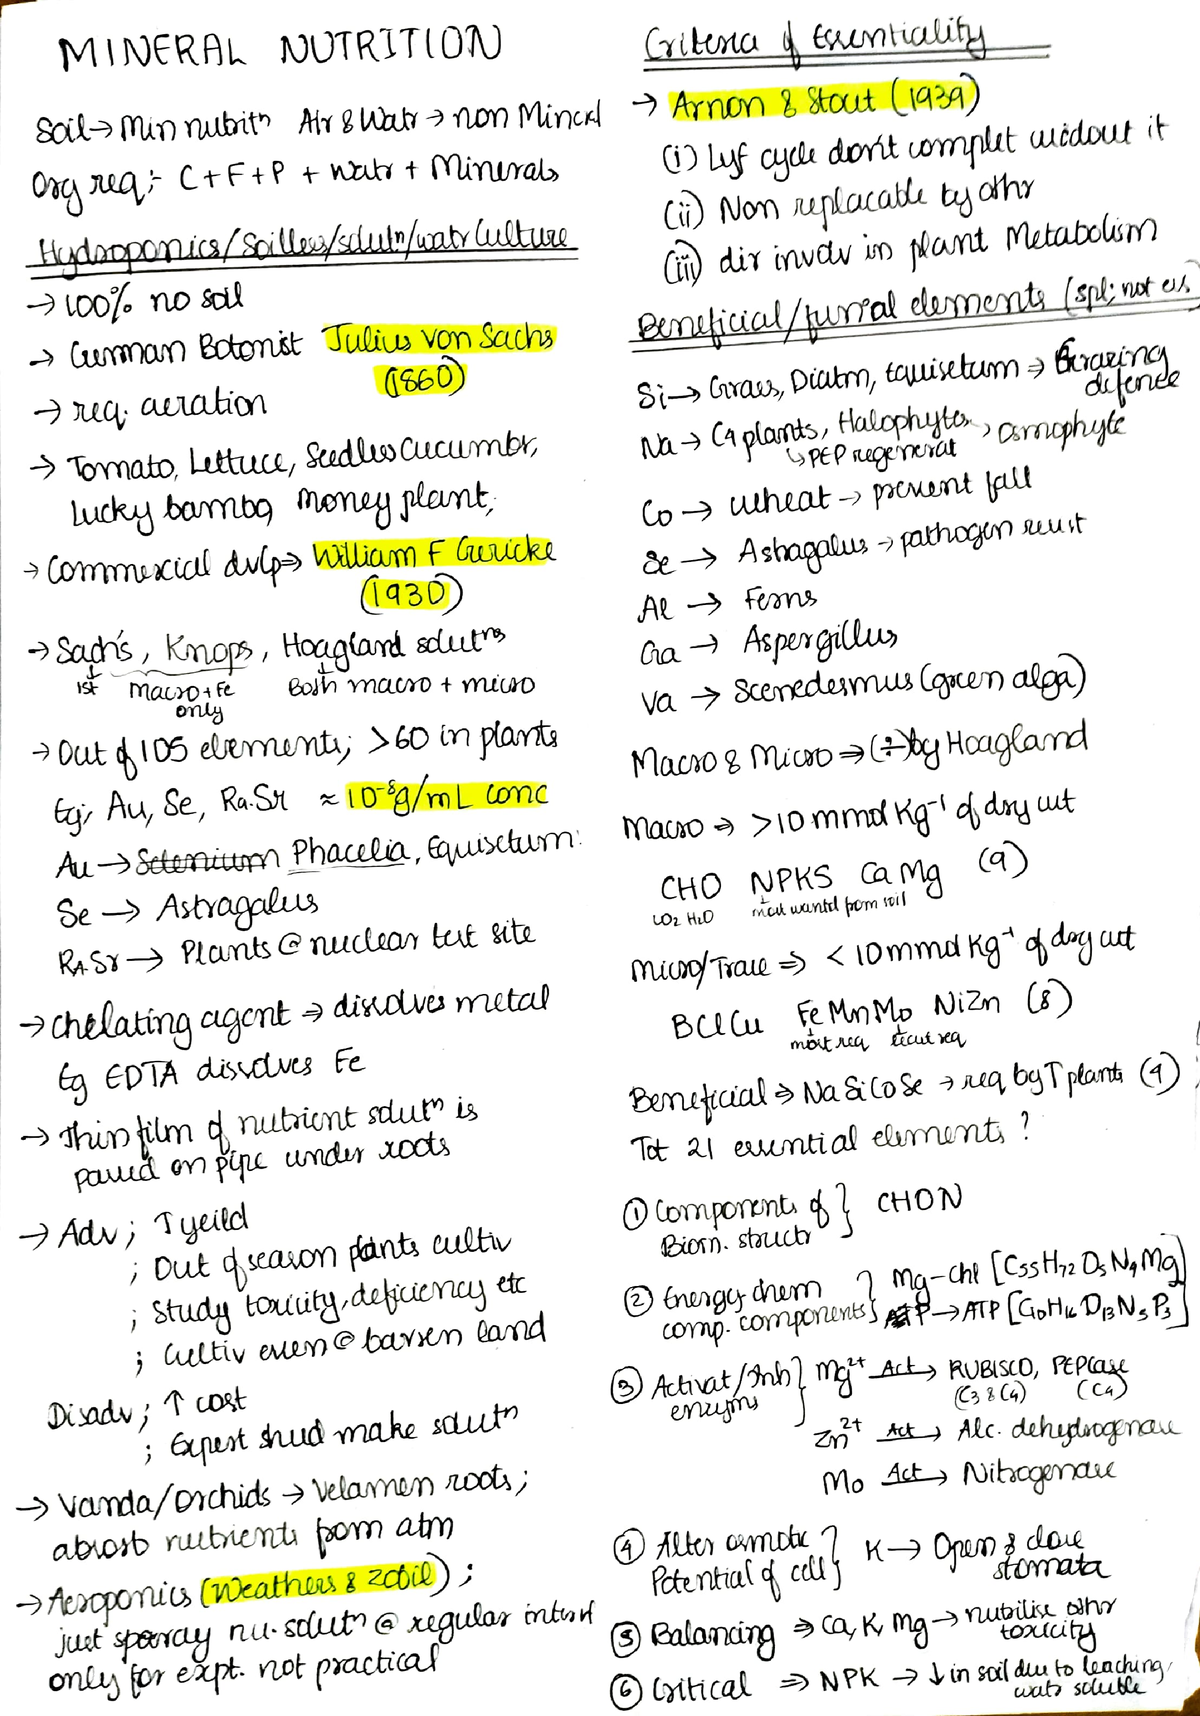 MINERAL NUTRITION
Soil → Min nutritⁿ Air & Watr → non Mineral
Org req :- C + F + P + watr + Minerals
Hydroponics/Soilless/solutⁿ/watr Culture
→ 100% no soil
→ German Botonist Julius von Sachs
(1860)
→ req. aeration
→ Tomato, Lettuce, Seedless Cucumbr,
lucky bambo, money plant,
→ Commercial dvlp ⇒ William F Gericke
(1930)
→ Sach's, Knops, Hoagland solutⁿˢ
↓ 1st Macro + Fe ↓ Both macro + micro
only
→ Out of 105 elements; >60 in plants
Eg; Au, Se, Ra.Sr ≈ 10⁻⁸g/mL conc
Au → Selenium Phacelia, Equisetum:
Se → Astragalus
Ra.Sr → Plants @ nuclear test site
→ chelating agent ⇒ dissolves metal
Eg EDTA dissolves Fe
→ Thin film of nutrient solutⁿ is
passed on pipe under roots
→ Adv ; ↑ yeild
; Out of season plants cultiv
; Study toxicity, deficiency etc
; Cultiv even @ barren land
Disadv ; ↑ cost
; Expert shud make solutⁿ
→ Vanda/Orchids → Velamen roots;
absorb nutrients from atm
→ Aeroponics (Weathers & Zobil) ;
just sparay nu. solutⁿ @ regular interval
only for expt. not practical
Criteria of Essentiality
→ Arnon & Stout (1939)
(i) Lyf cycle don't complet widout it
(ii) Non replacable by othr
(iii) dir involv in plant Metabolism
Beneficial/ elements (spl; not es.)
Si → Grass, Diatm, Equisetum ⇒ Grazing
defence
Na → C4 plants, Halophytes, Osmophyte
↳ PEP regenerat
Co → wheat → prevent fall
Se → Astragalus → pathogen resist
Al → Ferns
Ga → Aspergillus
Va → Scenedesmus (green alga)
Macro & Micro ⇒ (÷) by Hoagland
Macro ⇒ >10 mmol Kg⁻¹ of dry wt
CHO NPKS Ca Mg (9)
CO2 H2O ↓ most wantd from soil
Micro/Trace ⇒ <10 mmol Kg⁻¹ of dry wt
B Cl Cu Fe Mn Mo Ni Zn (8)
↓ most req ↓ least req
Beneficial ⇒ Na Si Co Se → req by ↑ plants (4)
Tot 21 essential elements ?
① Components of } CHON
Biom. structr
② Energy chem } Mg - chl [C55H72O5N4Mg]
comp. components } P → ATP [C10H16O13N5P3]
③ Activat/Inh } Mg²⁺ Act→ RUBISCO, PEPCase
enzyms (C3 & C4) (C4)
Zn²⁺ Act→ Alc. dehydrogenase
Mo Act→ Nitrogenase
④ Alter osmotic } K → Open & close
Potential of cell } stomata
⑤ Balancing ⇒ Ca, K, Mg → nutrilise othr
toxicity
⑥ Critical ⇒ NPK → ↓ in soil due to leaching,
watr soluble